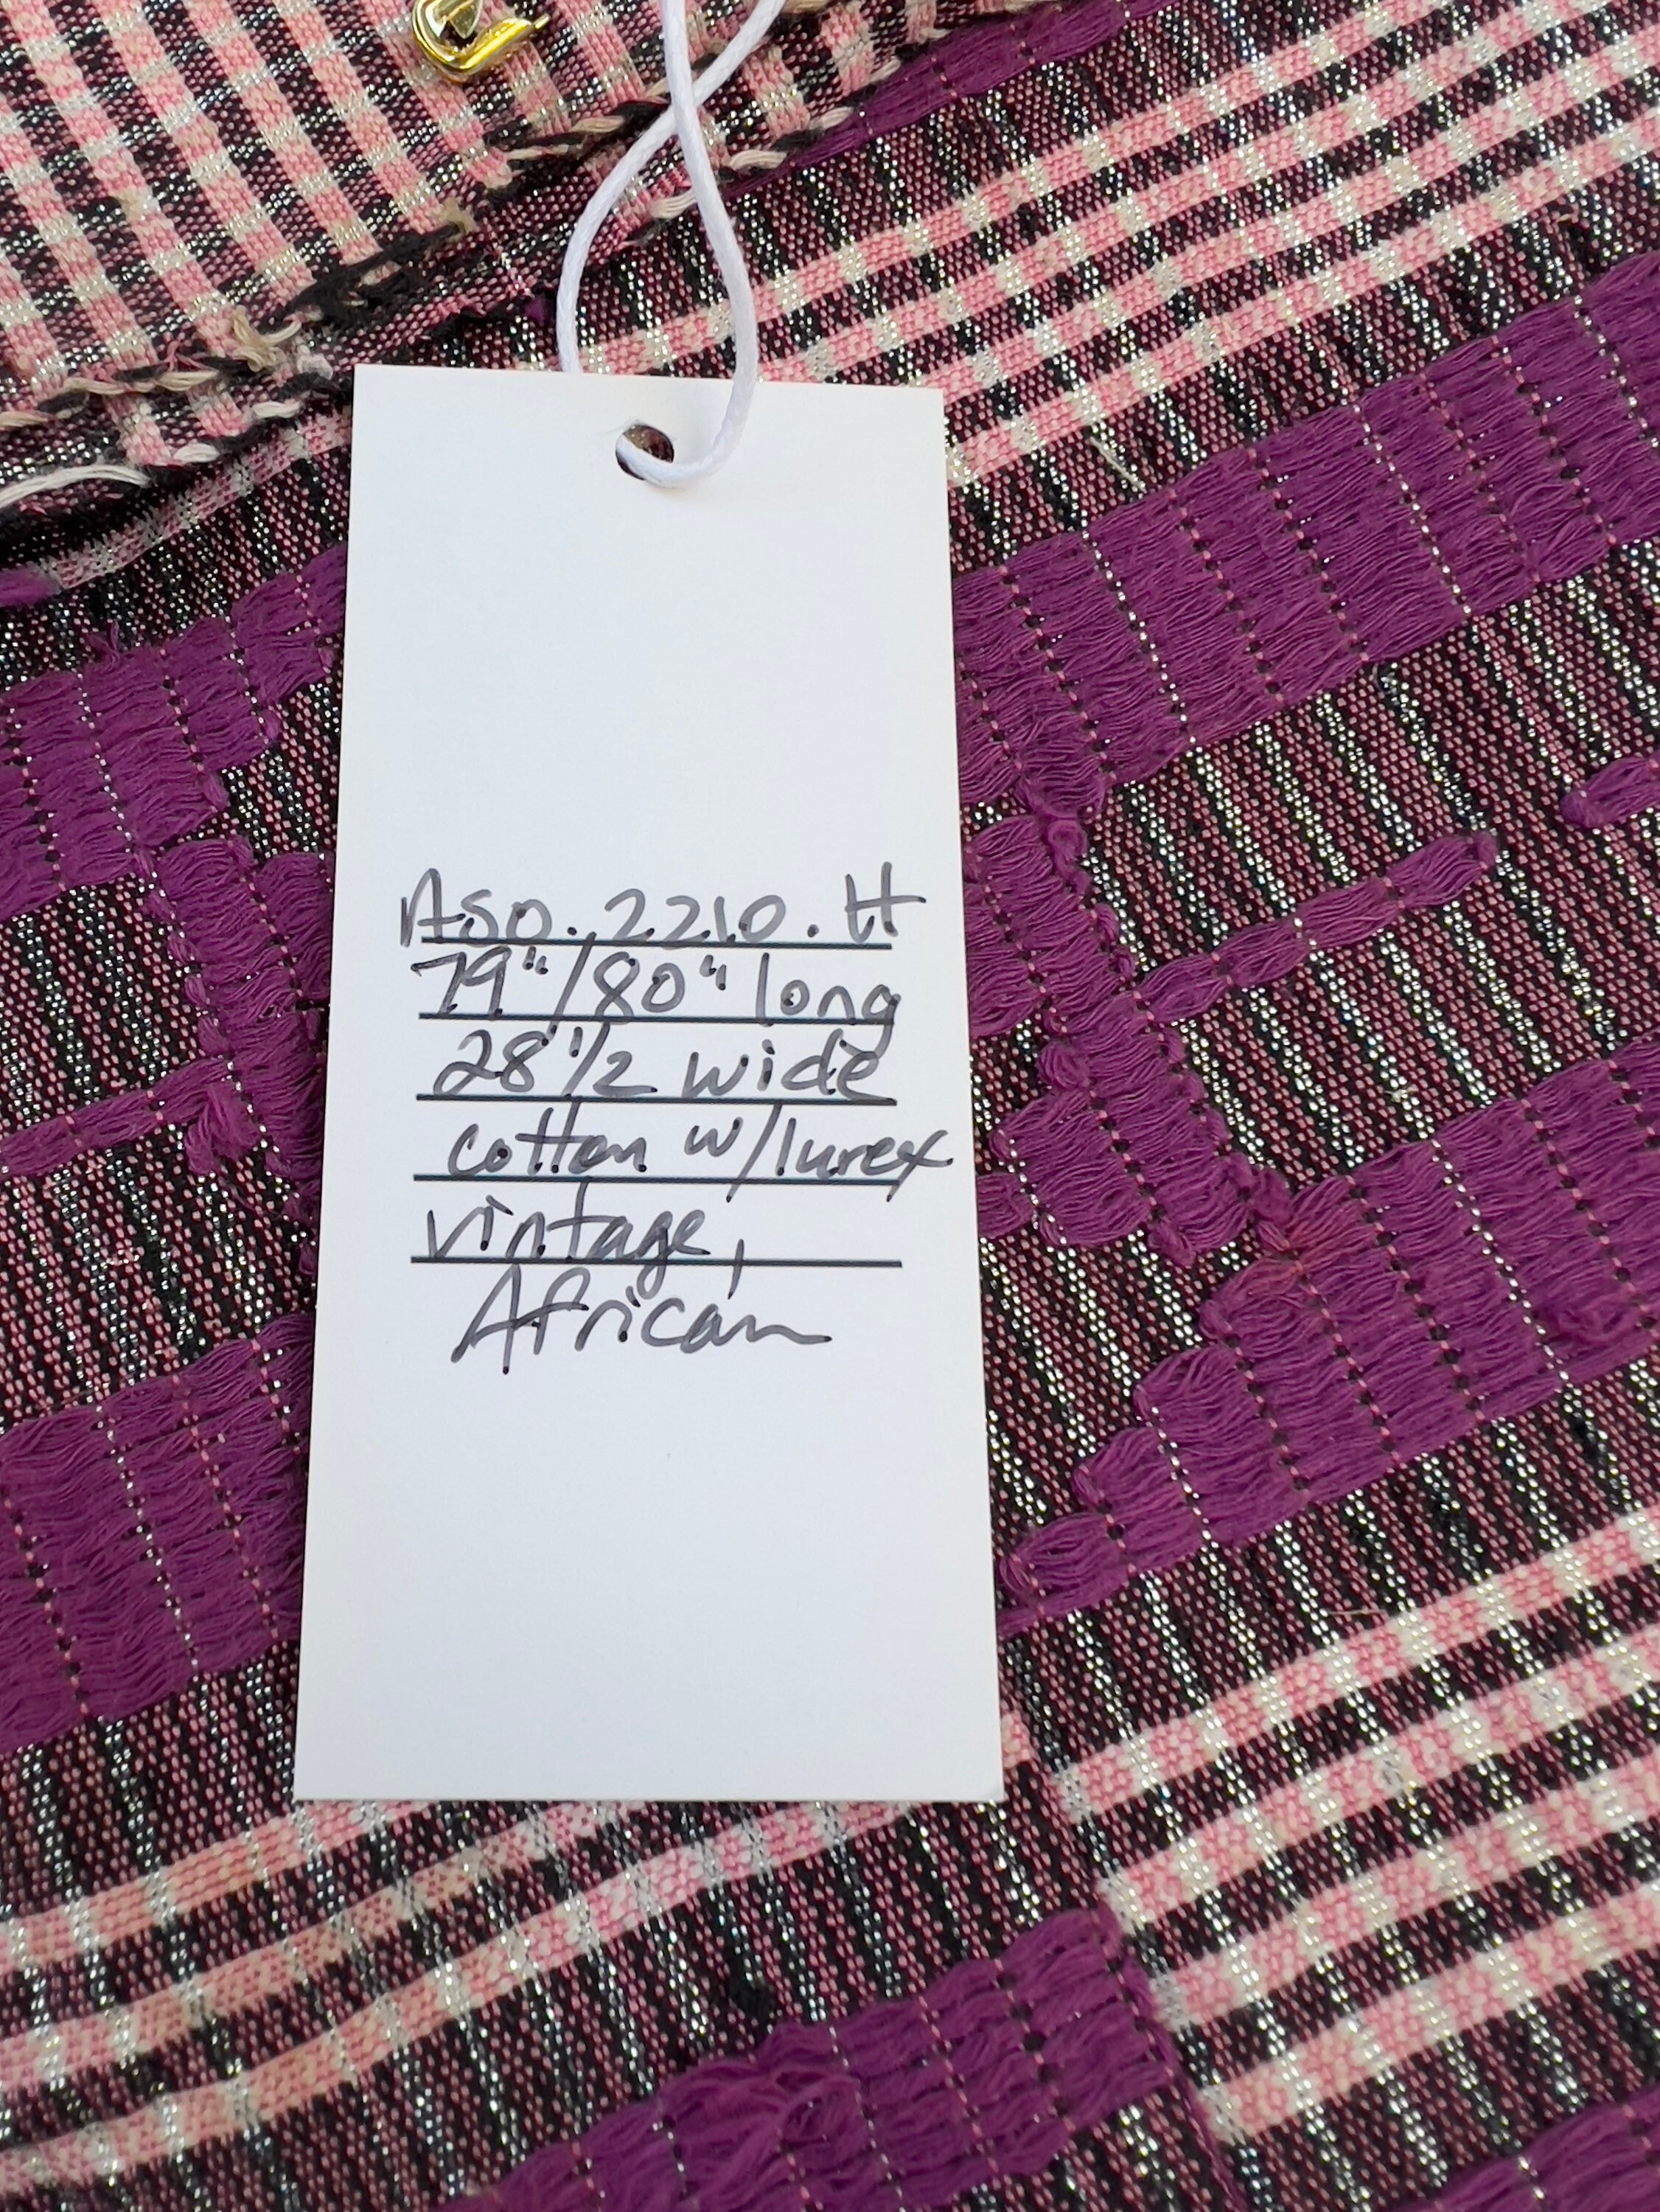 Aso. 2210. H
79"/80" long
28"1/2 wide
cotton w/lurex
vintage,
African